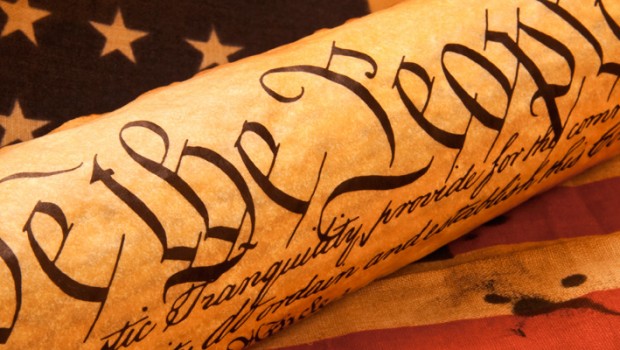 We the People
stic Tranquility, provide for the comm
ity do ordain and establish this Co